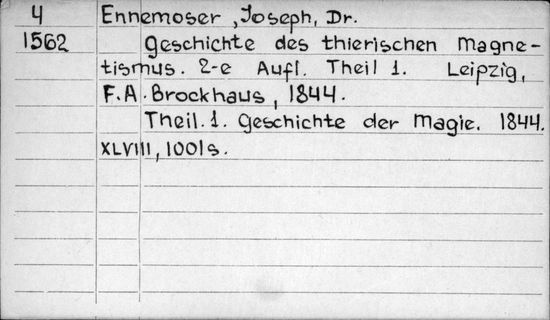 4 Ennemoser, Joseph, Dr.
1562 Geschichte des thierischen Magne-
tismus. 2-e Aufl. Theil 1. Leipzig,
F.A. Brockhaus, 1844.
Theil. 1. Geschichte der Magie. 1844.
XLVIII, 1001s.